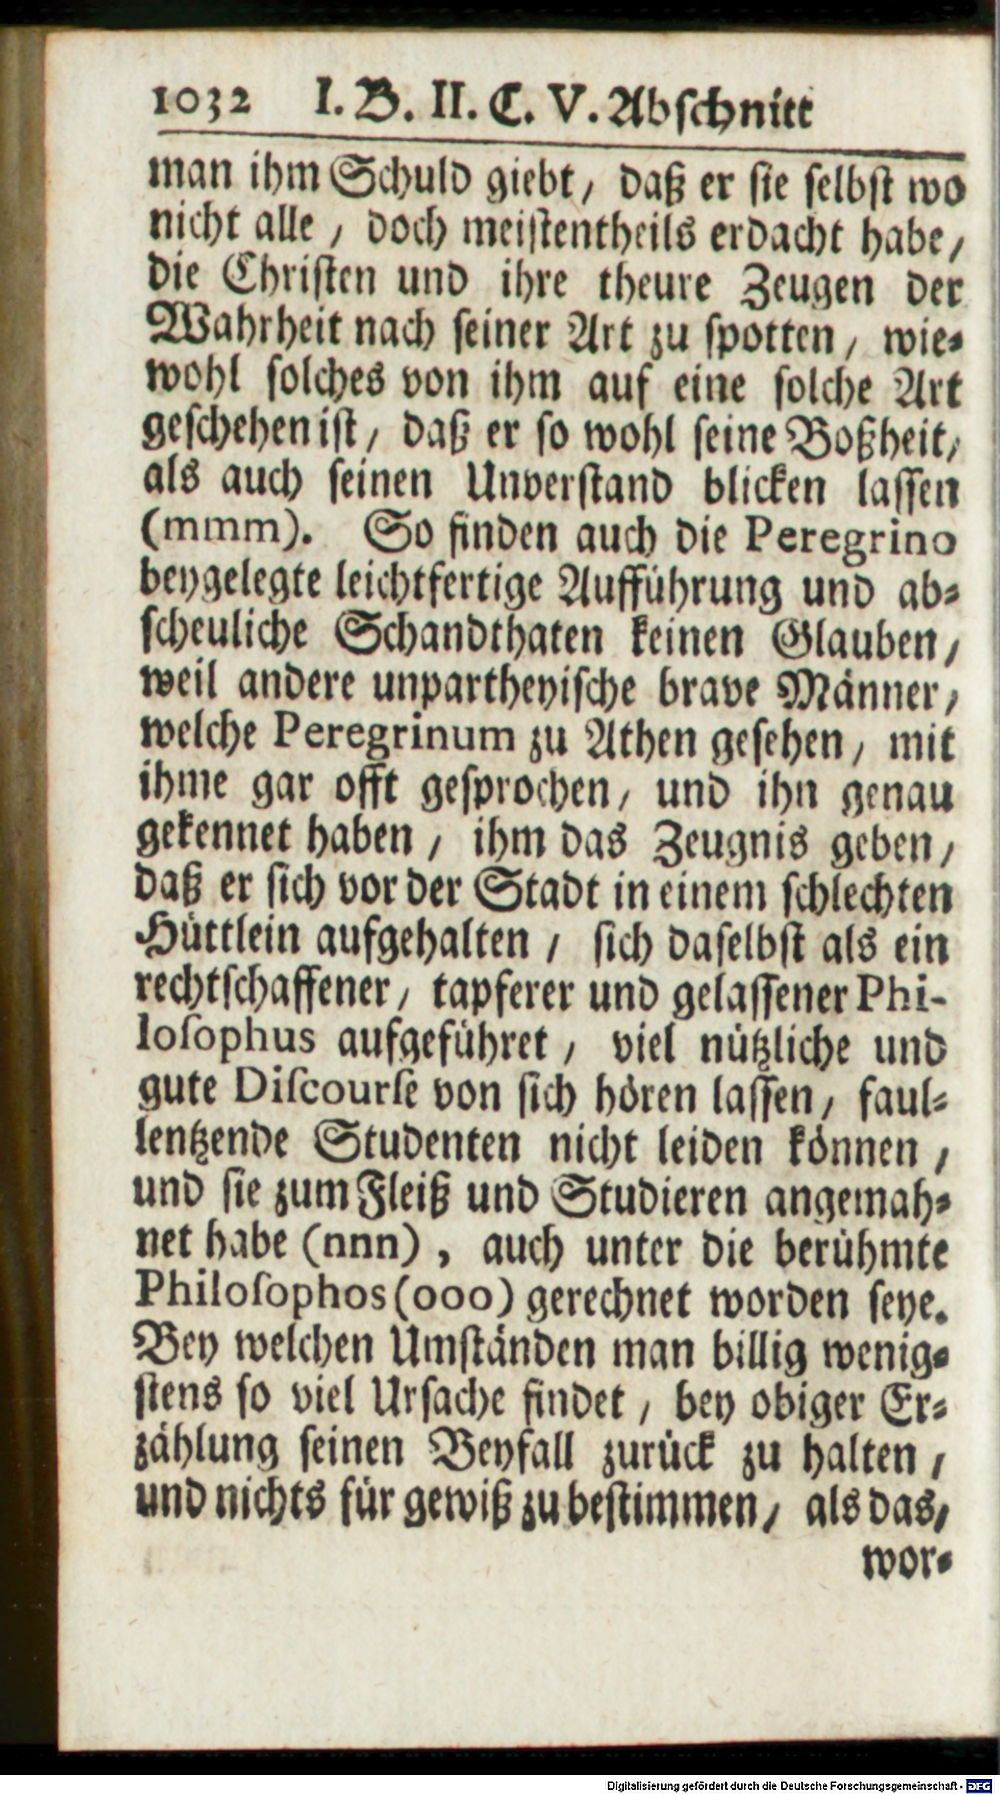 1032 I. B. II. C. V. Abschnitt
man ihm Schuld giebt, daß er sie selbst wo
nicht alle, doch meistentheils erdacht habe,
die Christen und ihre theure Zeugen der
Wahrheit nach seiner Art zu spotten, wie-
wohl solches von ihm auf eine solche Art
geschehen ist, daß er so wohl seine Boßheit,
als auch seinen Unverstand blicken lassen
(mmm). So finden auch die Peregrino
beygelegte leichtfertige Aufführung und ab-
scheuliche Schandthaten keinen Glauben,
weil andere unpartheyische brave Männer,
welche Peregrinum zu Athen gesehen, mit
ihme gar offt gesprochen, und ihn genau
gekennet haben, ihm das Zeugnis geben,
daß er sich vor der Stadt in einem schlechten
Hüttlein aufgehalten, sich daselbst als ein
rechtschaffener, tapferer und gelassener Phi-
loſophus aufgeführet, viel nützliche und
gute Diſcourſe von sich hören lassen, faul-
lentzende Studenten nicht leiden können,
und sie zum Fleiß und Studieren angemah-
net habe (nnn), auch unter die berühmte
Philoſophos (ooo) gerechnet worden seye.
Bey welchen Umständen man billig wenig-
stens so viel Ursache findet, bey obiger Er-
zählung seinen Beyfall zurück zu halten,
und nichts für gewiß zu bestimmen, als das,
wor-
Digitalisierung gefördert durch die Deutsche Forschungsgemeinschaft - DFG